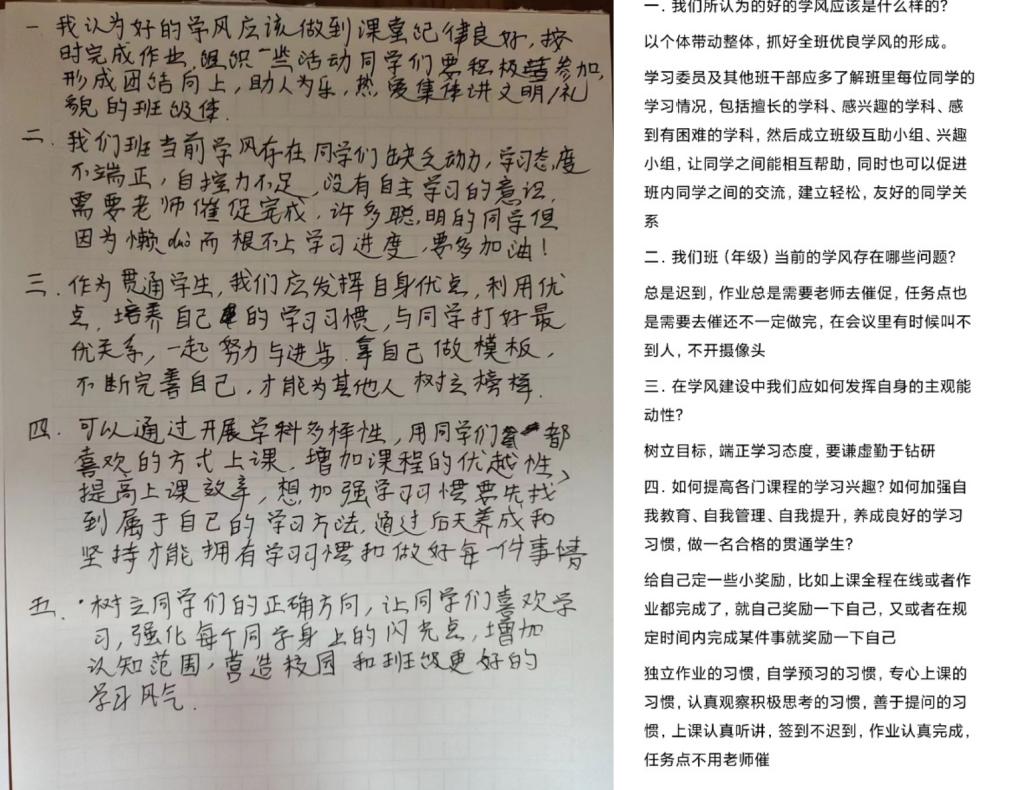 一 我认为好的学风应该做到课堂纪律良好，按
时完成作业，组织一些活动同学们要积极参加，
形成团结向上，助人为乐，热爱集体讲文明礼
貌的班级体.
二. 我们班当前学风存在同学们缺乏动力，学习态度
不端正，自控力不足，没有自主学习的意识，
需要老师催促完成，许多聪明的同学但
因为懒duò而根不上学习进度，要多加油！
三. 作为贯通学生，我们应发挥自身优点，利用优
点，培养自己的学习习惯，与同学打好最
优关系，一起努力与进步.拿自己做模板，
不断完善自己，才能为其他人树立榜样.
四. 可以通过开展学科多样性，用同学们都
喜欢的方式上课，增加课程的优越性，
提高上课效率，想加强学习习惯要先找
到属于自己的学习方法.通过后天养成和
坚持才能拥有学习习惯和做好每一件事情
五.·树立同学们的正确方向，让同学们喜欢学
习，强化每个同学身上的闪光点，增加
认知范围，营造校园和班级更好的
学习风气.
一. 我们所认为的好的学风应该是什么样的？
以个体带动整体，抓好全班优良学风的形成。
学习委员及其他班干部应多了解班里每位同学的
学习情况，包括擅长的学科、感兴趣的学科、感
到有困难的学科，然后成立班级互助小组、兴趣
小组，让同学之间能相互帮助，同时也可以促进
班内同学之间的交流，建立轻松，友好的同学关
系
二. 我们班（年级）当前的学风存在哪些问题？
总是迟到，作业总是需要老师去催促，任务点也
是需要去催还不一定做完，在会议里有时候叫不
到人，不开摄像头
三. 在学风建设中我们应如何发挥自身的主观能
动性？
树立目标，端正学习态度，要谦虚勤于钻研
四. 如何提高各门课程的学习兴趣？如何加强自
我教育、自我管理、自我提升，养成良好的学习
习惯，做一名合格的贯通学生？
给自己定一些小奖励，比如上课全程在线或者作
业都完成了，就自己奖励一下自己，又或者在规
定时间内完成某件事就奖励一下自己
独立作业的习惯，自学预习的习惯，专心上课的
习惯，认真观察积极思考的习惯，善于提问的习
惯，上课认真听讲，签到不迟到，作业认真完成，
任务点不用老师催